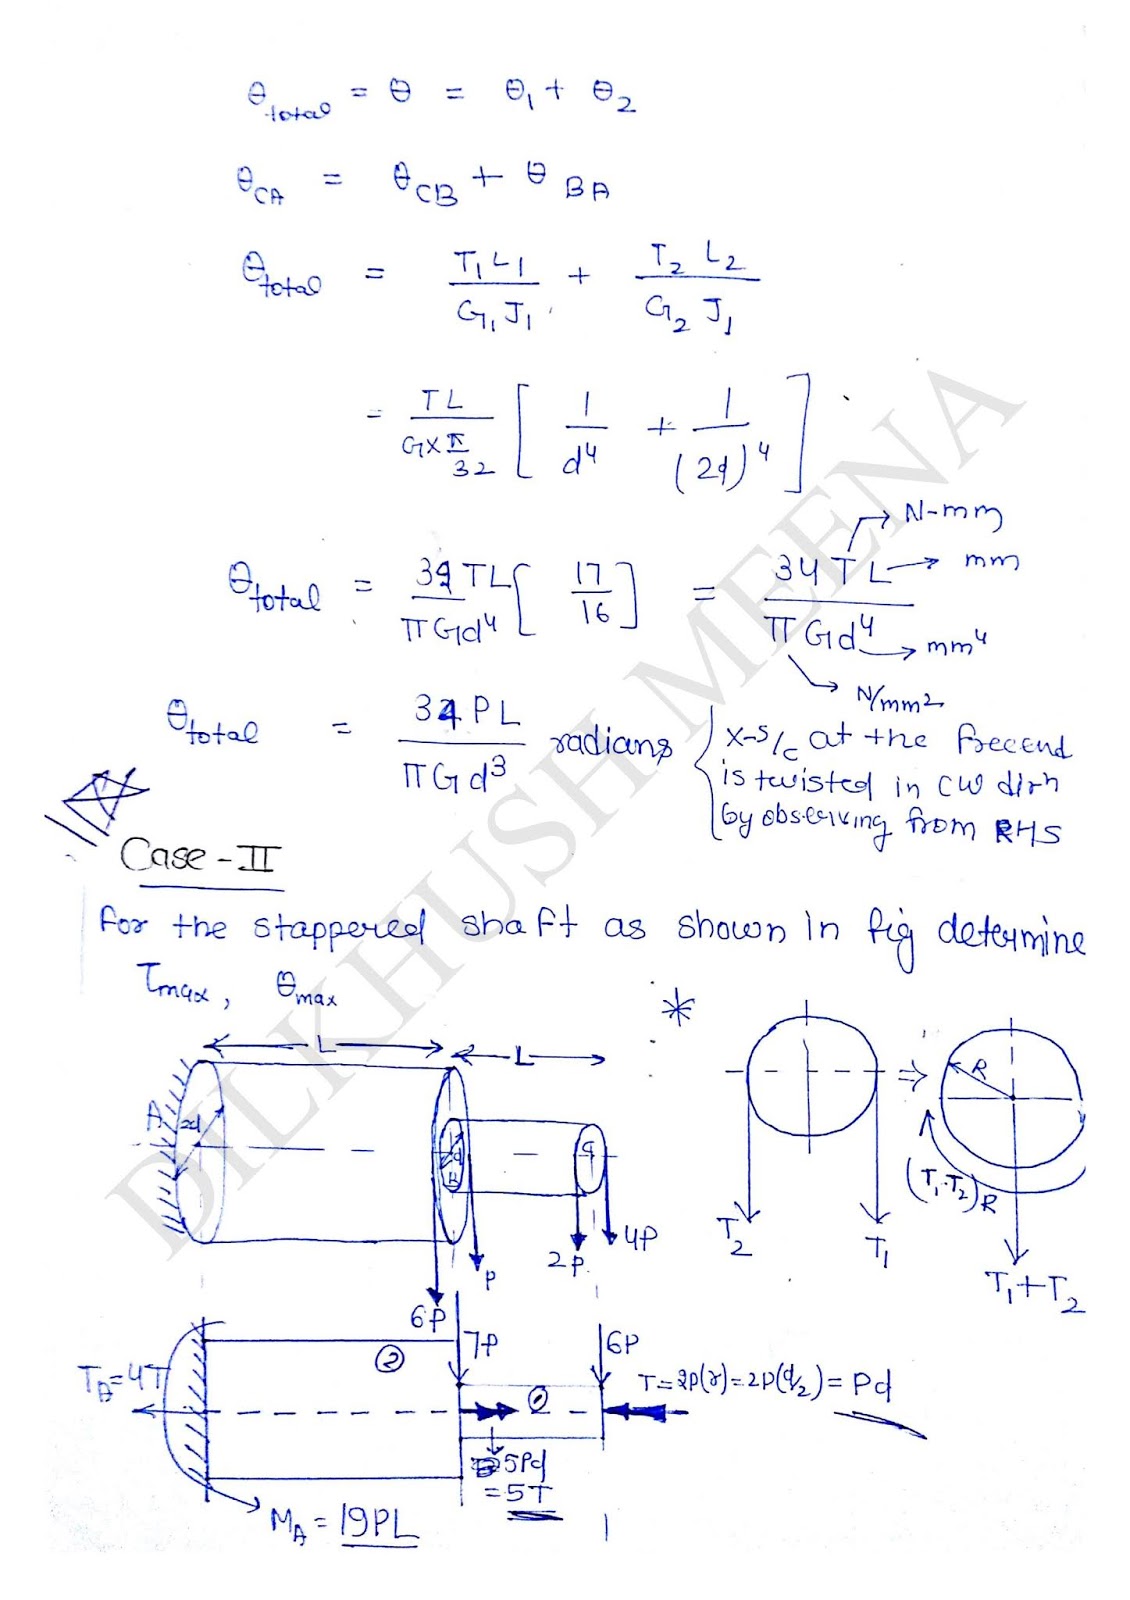 θtotal = θ = θ1 + θ2
θCA = θCB + θBA
θtotal = T1 L1 / G1 J1 + T2 L2 / G2 J1
= TL / G×π/32 [ 1/d⁴ + 1/(2d)⁴ ]
N-mm
θtotal = 32 TL / πGd⁴ [ 17/16 ] = 34 TL / πGd⁴
mm
mm⁴
N/mm2
θtotal = 34 PL / πGd³ radians
x-s/c at the freeend
is twisted in CW dirn
by observing from RHS
Case-II
for the stappered shaft as shown in fig determine
τmax, θmax
L
L
A
2d
d
B
C
R
(T1-T2)R
T2
T1
T1+T2
2P
4P
P
6P
7P
6P
TA=4T
②
①
T=2P(r)=2P(d/2)=Pd
5Pd
=5T
MA = 19PL
DILKHUSH MEENA